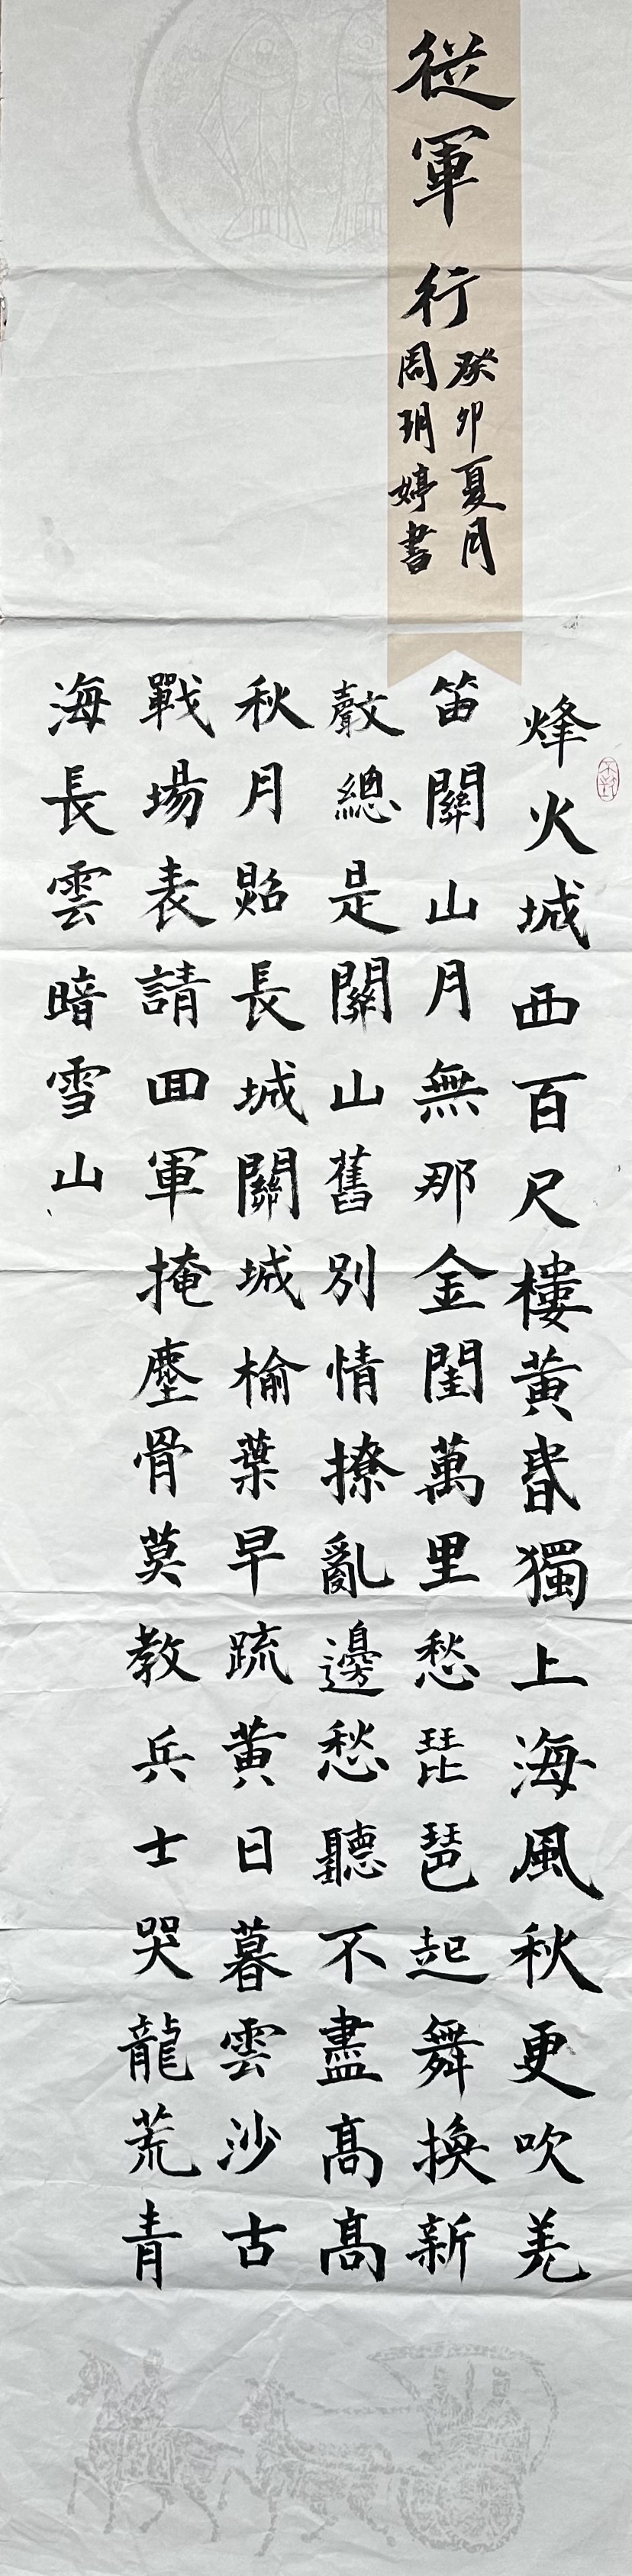 從軍行
癸卯夏月
周玥婷書
烽火城西百尺樓黄昏獨上海風秋更吹羌
笛關山月無那金閨萬里愁琵琶起舞換新
聲總是關山舊別情撩亂邊愁聽不盡高高
秋月照長城關城榆葉早疏黄日暮雲沙古
戰場表請回軍掩塵骨莫教兵士哭龍荒青
海長雲暗雪山